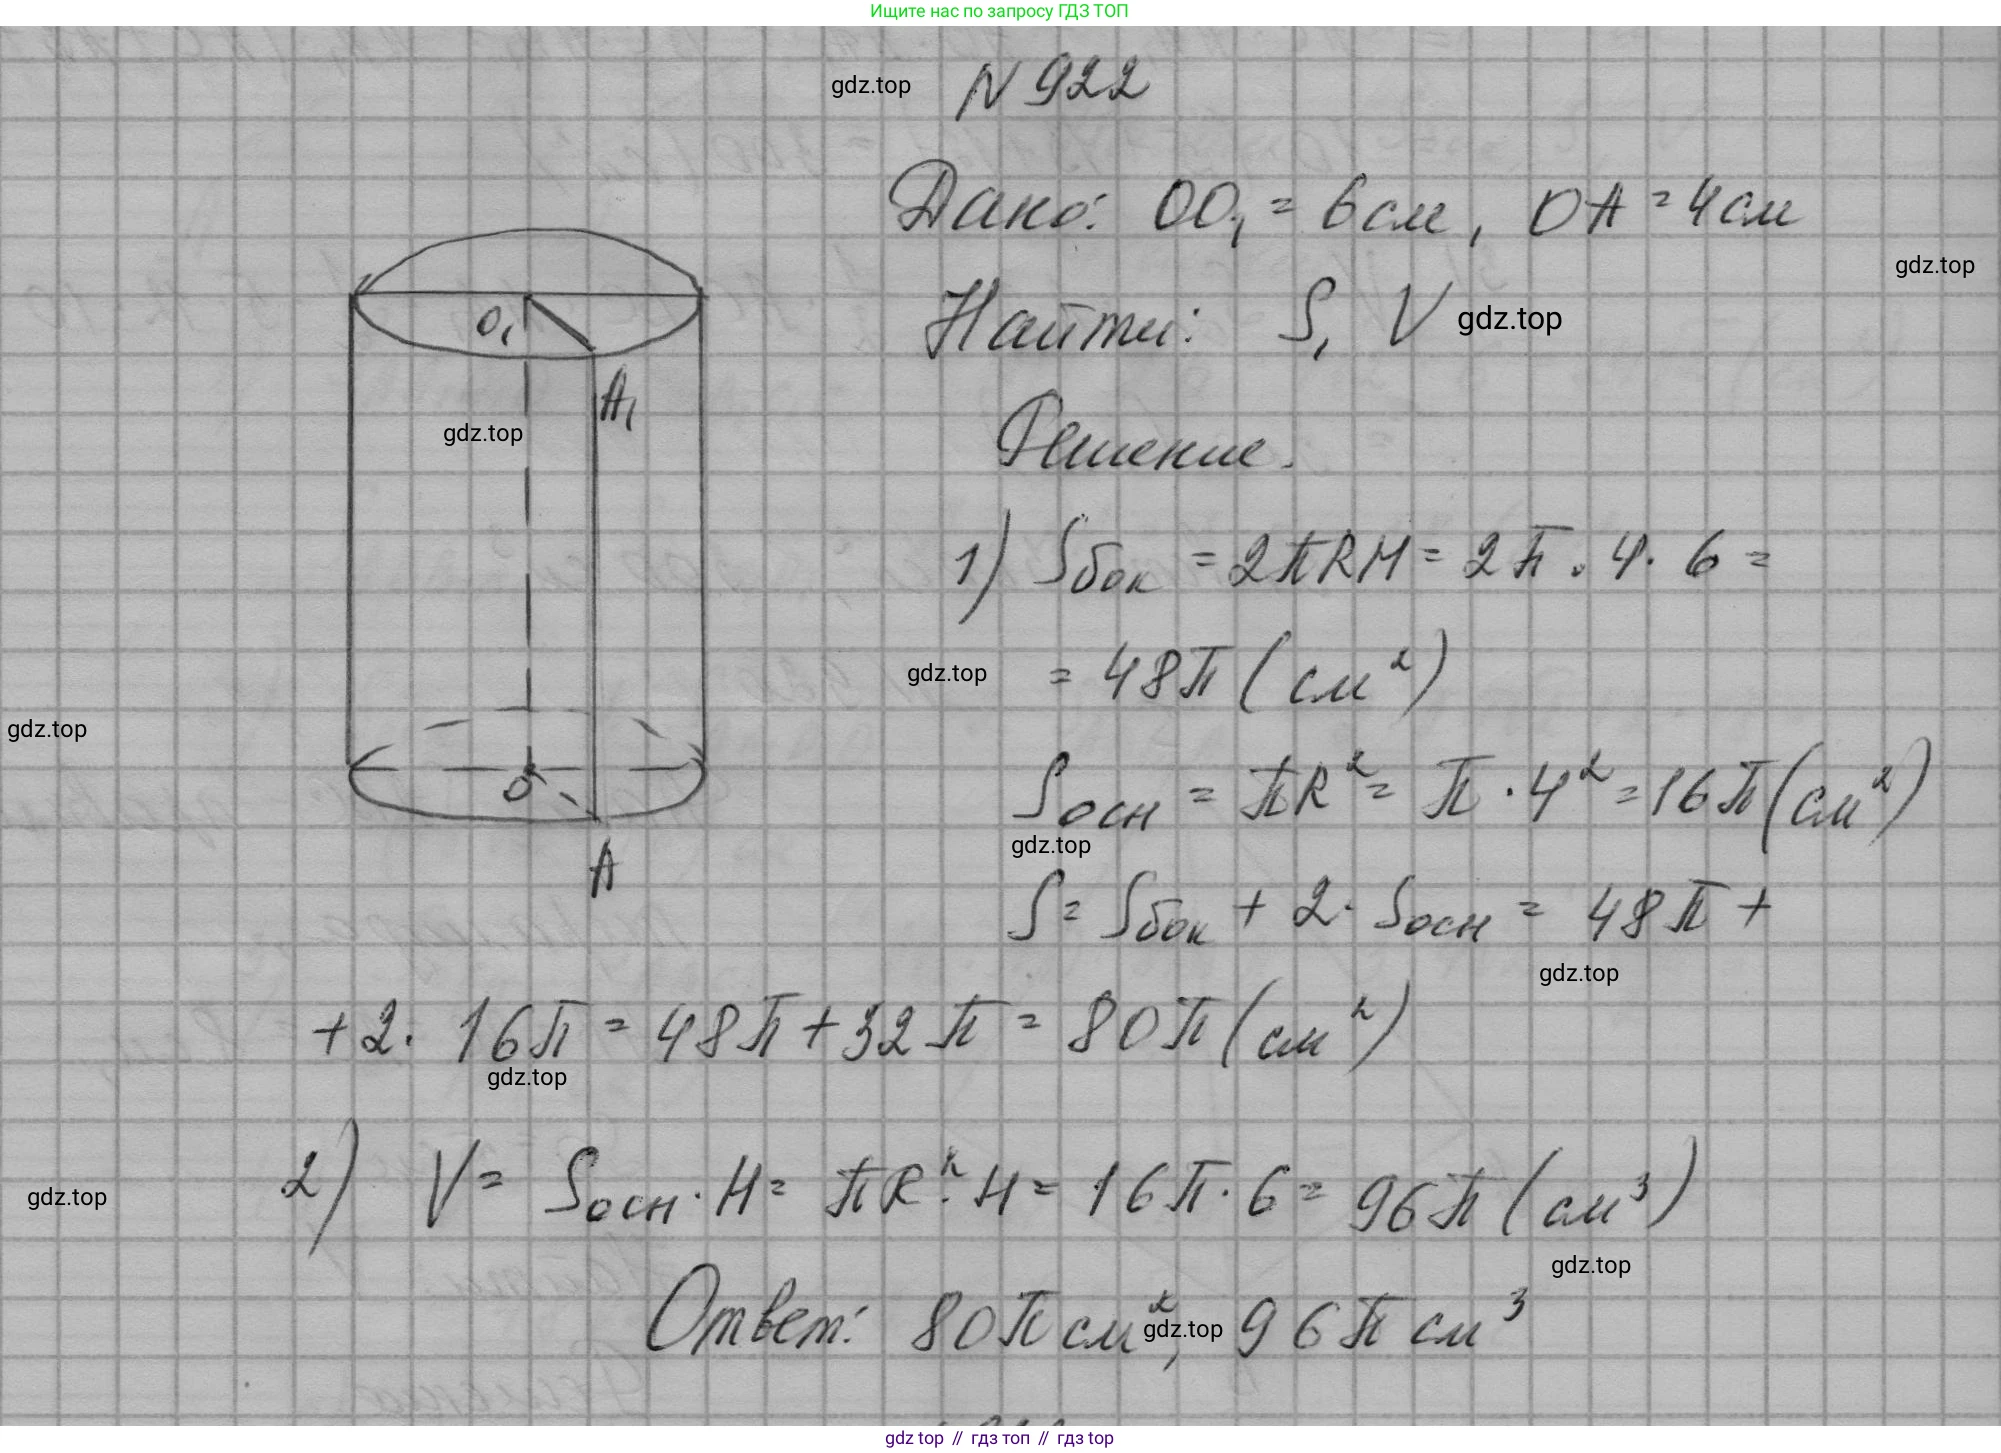 Ищите нас по запросу ГДЗ ТОП
gdz.top
N 922
Дано: OO₁ = 6 см, OA = 4 см
gdz.top
Найти: S, V
gdz.top
Решение.
O₁
A₁
gdz.top
1) Sбок = 2πRH = 2π · 4 · 6 =
gdz.top
= 48π (см²)
gdz.top
Sосн = πR² = π · 4² = 16π (см²)
O
gdz.top
A
S = Sбок + 2 · Sосн = 48π +
gdz.top
+ 2 · 16π = 48π + 32π = 80π (см²)
gdz.top
2) V = Sосн · H = πR² · H = 16π · 6 = 96π (см³)
gdz.top
gdz.top
Ответ: 80π см², 96π см³
gdz.top
gdz top // гдз топ // гдз top